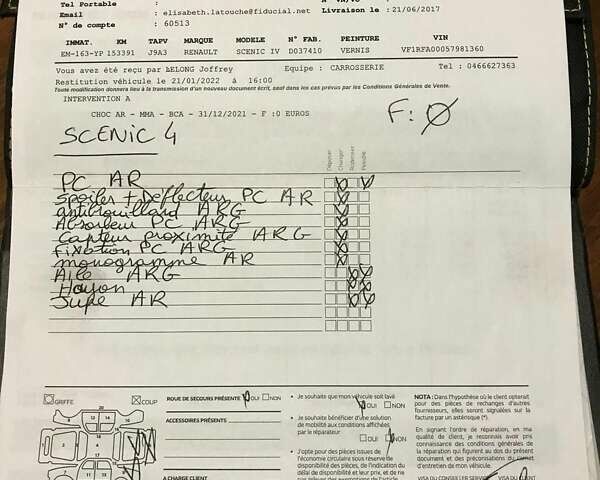 Tel Portable :
Email : elisabeth.latouche@fiducial.net Livraison le : 21/06/2017
N° de compte : 60513
IMMAT. KM TAPV MARQUE MODELE N° FAB. PEINTURE VIN
EM-163-YP 153391 J9A3 RENAULT SCENIC IV D037410 VERNIS VF1RFA00057981360
Vous avez été reçu par BELONG Joffrey Equipe : CARROSSERIE Tel : 0466627363
Restitution véhicule le 21/01/2022 à 16:00
Toute modification donnera lieu à la transmission d'un nouveau document écrit, sauf dans les cas prévus par les Conditions Générales de Vente.
INTERVENTION A
CHOC AR - MMA - BCA - 31/12/2021 - F :0 EUROS
F: Ø
SCENIC 4
Déposer Changer Redresser Peindre
PC AR
Spoiler + Deflecteur PC AR
antibrouillard ARG
Absorbeur PC ARG
Capteur proximité ARG
fixation PC ARG
monogramme AR
Aile ARG
Hayon
Jupe AR
GRIFFE COUP
ROUE DE SECOURS PRÉSENTE OUI NON
ACCESSOIRES PRÉSENTS :
A CHARGE CLIENT
• Je souhaite que mon véhicule soit lavé
OUI NON
• Je souhaite bénéficier d'une solution
de mobilité aux conditions affichées
par le réparateur
OUI NON
• J'opte pour des pièces issues de
l'économie circulaire sous réserve de
disponibilité des pièces, de l'indication
du délai de disponibilité et leur prix, et de ne
NOTA : Dans l'hypothèse où le client opterait
pour des pièces de rechanges d'autres
fournisseurs, elles seront signalées sur la
facture par un astérisque (*).
En signant l'ordre de réparation, en ma
qualité de client, je reconnais avoir pris
connaissance des conditions générales de
réparation qui figurent au dos du présent
document et des préconisations du carnet
d'entretien de mon véhicule.
VISA DU CONSEILLER SERVICE VISA DU CLIENT